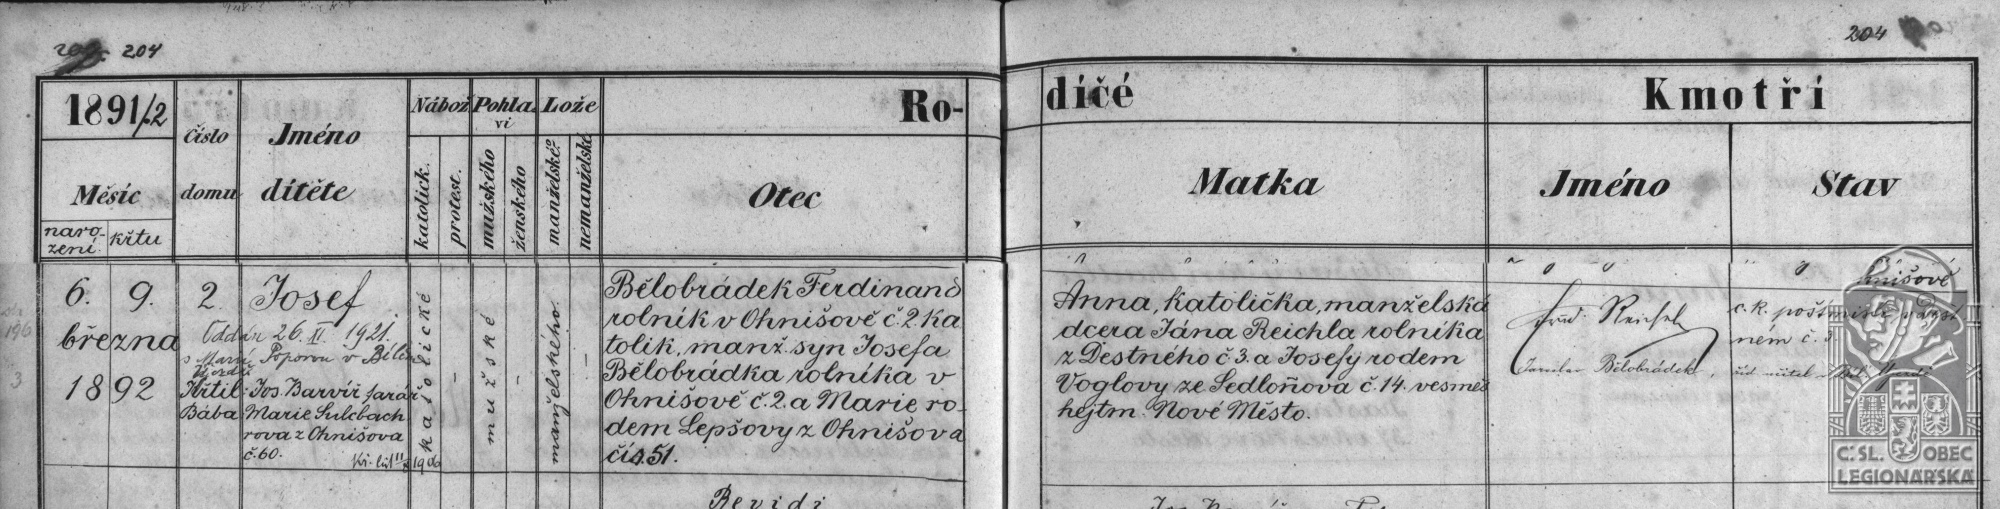 204
204
1891/2
Měsíc
naro-
zení
křtu
Číslo
domu
Jméno
dítěte
Nábož
katolick.
protest.
Pohla-
ví
mužského
ženského
Lože
manželské?
nemanželské
Ro-
Otec
dičé
Matka
Kmotři
Jméno
Stav
6. 9.
března
1892
2.
Josef
Oddán 26. II. 1921.
s Marií Poporou v Bílém
Újezdě
Křtil: Jos. Barvíř farář
Bába Marie Sulcbach
rova z Ohnišova
č. 60.
Kř. list
katolické
-
mužské
-
manželského.
-
Bělobrádek Ferdinand
rolník v Ohnišově č. 2. ka
tolík, manž. syn Josefa
Bělobrádka rolníka v
Ohnišově č. 2. a Marie ro-
dem Lepšovy z Ohnišova
čís. 51.
Anna, katolička, manželská
dcera Jána Reichla rolníka
z Destného č 3. a Josefy rodem
Voglovy ze Sedloňova č. 14. vesměs
hejtm. Nové Město.
Reichel
Jaroslav Bělobrádek,
c. k. poštmistr v Dešt
ném č. 3.
Revidi
Č. SL. OBEC
LEGIONÁŘSKÁ